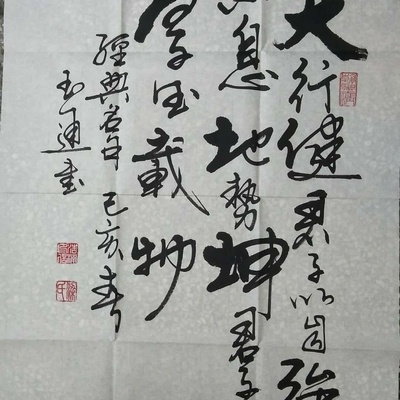 天行健君子以自強
不息地勢坤君子
厚德載物
經典名句 己亥春
玉通書